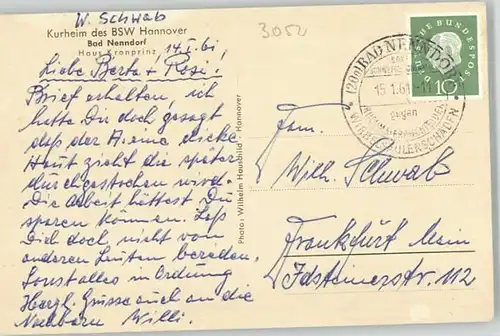 W. Schwab
3052
Kurheim des BSW Hannover
Bad Nenndorf
Haus Kronprinz
14.1.61
Liebe Berta + Rosi!
Brief erhalten, ich
hatte Dir doch gesagt
daß der A. eine dicke
Haut zieht die später
durchgestochen wird.
Die Arbeit hättest Du
sparen können. Laß
Dich doch nicht von
anderen Leuten bereden.
Sonst alles in Ordnung
Herzl. Grüsse auch an die
Nachbarn Willi.
Photo: Wilhelm Hausbild · Hannover
(20a) BAD NENNDORF
15.1.61-11
gegen
WIRBELSÄULENSCHÄDEN
DEUTSCHE BUNDESPOST
10
Fam.
Wilh. Schwab
Frankfurt Main
Idsteinerstr. 112